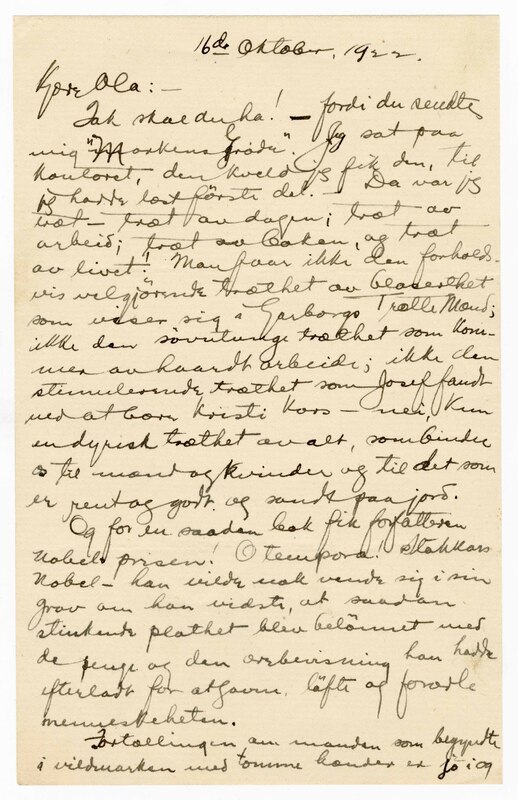 16de Oktober, 1922.
Kjære Ola: —
Tak skal du ha! — fordi du sendte
mig "Markens Grøde". Jeg sat paa
kontoret, den kveld jeg fik den, til
jeg hadde læst förste del. — Da var jeg
træt — træt av dagen; træt av
arbeid; træt av boken, og træt
av livet! Man faar ikke den forholds-
vis velgjörende træthet av blaserthet
som viser sig i Garborgs Trætte Mænd;
ikke den sövntunge træthet som kom-
mer av haardt arbeide; ikke den
stimulerende træthet som Josef fandt
ved at bære Kristi Kors — nei, kun
en dyrisk træthet av alt, som binder
os til mænd og kvinder og til det som
er rent og godt og sandt paa jord.
Og for en saadan bok fik forfatteren
Nobel prisen! O tempora! Stakkars
Nobel — han vilde nok vende sig i sin
grav om han vidste, at saadan
stinkende plathet blev belönnet med
de penge og den ærebevisning han hadde
efterladt for at gavne, löfte og forædle
menneskeheten.
Fortællingen om manden som begyndte
i vildmarken med tomme hænder er jo i og